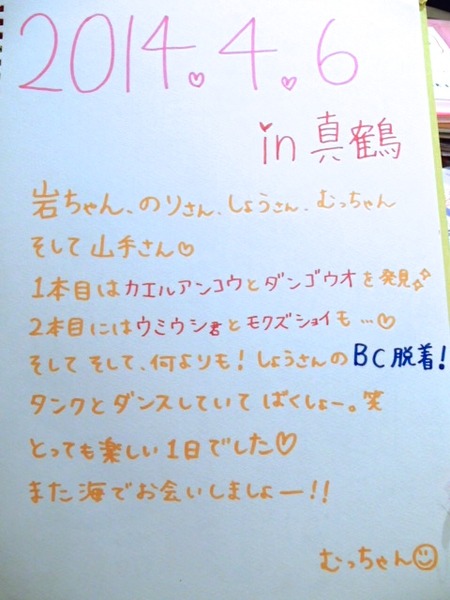 2014.4.6
in 真鶴
岩ちゃん、のりさん、しょうさん、むっちゃん
そして山手さん♡
1本目はカエルアンコウとダンゴウオを発見✧
2本目にはウミウシ君とモクズショイも…♡
そしてそして、何よりも!しょうさんのBC脱着!
タンクとダンスしていてばくしょー。笑
とっても楽しい1日でした♡
また海でお会いしましょー!!
むっちゃん☺